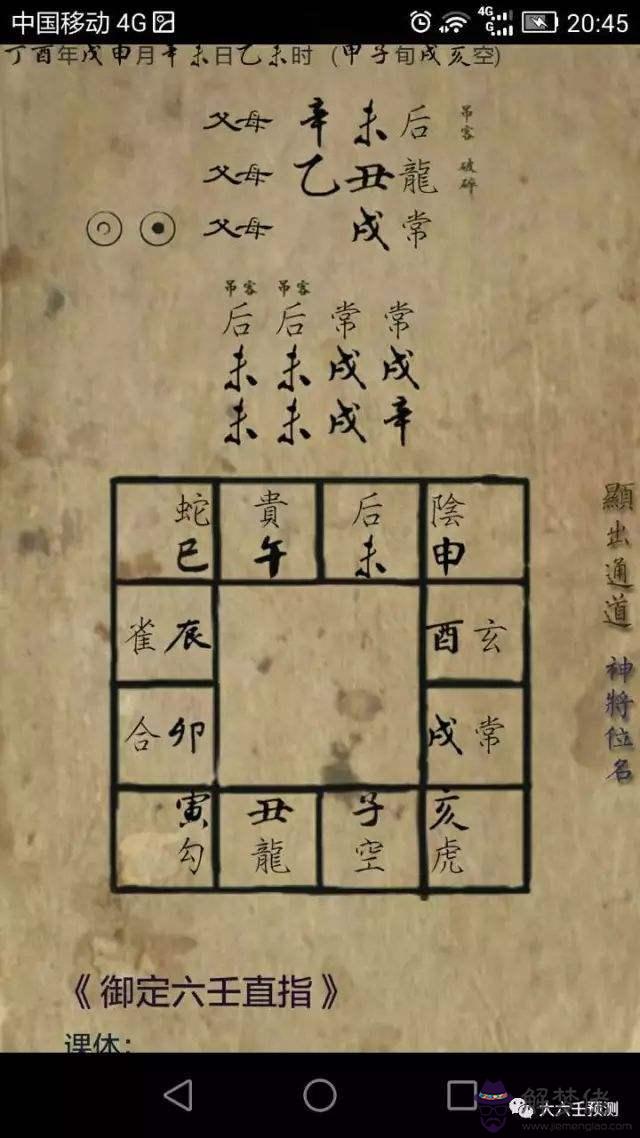 中国移动 4G 4G G 20:45
丁酉年戊申月辛未日乙未时 (甲子旬戌亥空)
父母 辛未后 吊客
父母 乙丑龍 破碎
父母 戌常
吊客 吊客
后后常常
未未戌戌
未未戌辛
蛇 貴 后 陰
巳 午 未 申
雀辰 酉玄
合卯 戌常
寅 丑 子 亥
勾 龍 空 虎
顯出通道 神將位名
《御定六壬直指》
课体:
大六壬预测
解梦佬
www.jiemenglao.com